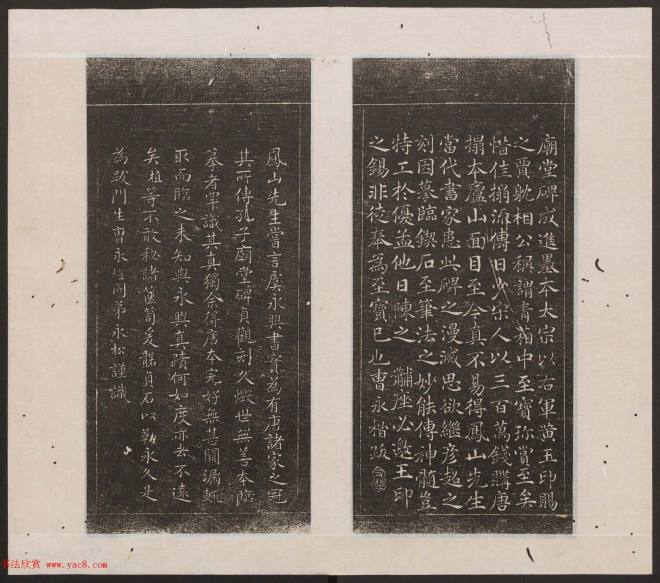 廟堂碑成進墨本太宗以右軍黃玉印賜
之賈躭相公稱謂青箱中至寶珍賞至矣
惜佳搨流傳日少宋人以三百萬錢購唐
搨本廬山面目至今真不易得鳳山先生
當代書家患此碑之漫滅思欲繼彥超之
刻因摹臨鍥石至筆法之妙能傳神髓豈
特工於優孟他日陳之黼座必邀玉印
之錫非徒奉為至寶已也曹永楷跋
鳳山先生嘗言虞永興書實為有唐諸家之冠
其所傳孔子廟堂碑貞觀刻久燬世無善本臨
摹者罕識其真獨今得唐本完好無甚闕漏輒
取而臨之未知與永興真蹟何如度亦去不遠
矣植等不敢秘諸篋笥爰龤貞石以勒永久之
為跋門生曹永植同弟永松謹識
书法欣赏 www.yac8.com